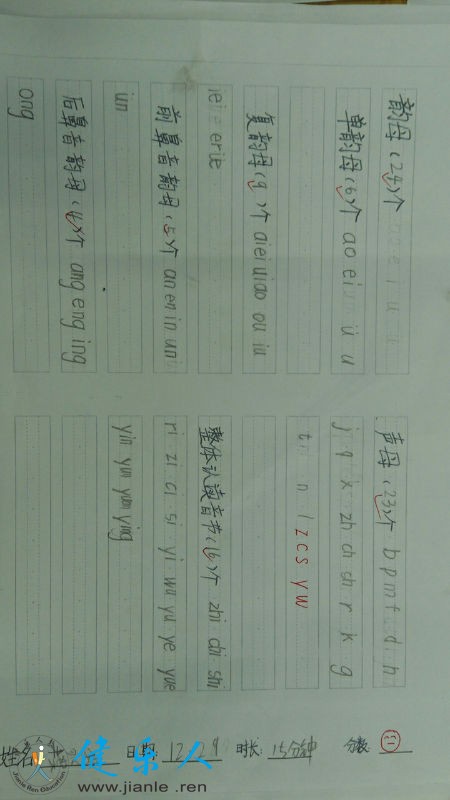 韵母(24)个
单韵母(6)个 a o e i ü u
复韵母(9)个 ai ei ui ao ou iu
ie er üe
前鼻音韵母(5)个 an en in un
ün
后鼻音韵母(4)个 ang eng ing
ong
声母(23)个 b p m f d h
j q x zh ch sh r k g
t n l z c s y w
整体认读音节(16)个 zhi chi shi
ri zi ci si yi wu yu ye yue
yin yun yuan ying
姓名: 日期: 12.29 时长: 15分钟 分数:
健乐人
Jianle Ren Education
www.jianle.ren